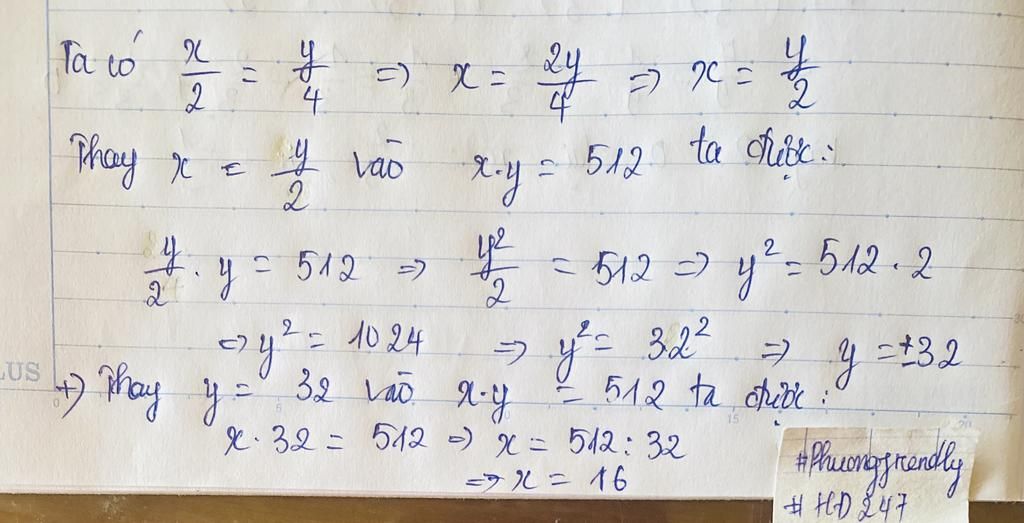 Ta có x/2 = y/4 => x = 2y/4 => x = y/2
Thay x = y/2 vào x.y = 512 ta được:
y/2 . y = 512 => y²/2 = 512 => y² = 512 . 2
=> y² = 1024 => y² = 32² => y = ±32
+) Thay y = 32 vào x.y = 512 ta được:
x.32 = 512 => x = 512 : 32
=> x = 16
LUS
0 5 15 20
#Phuongfrendly
# HD 247